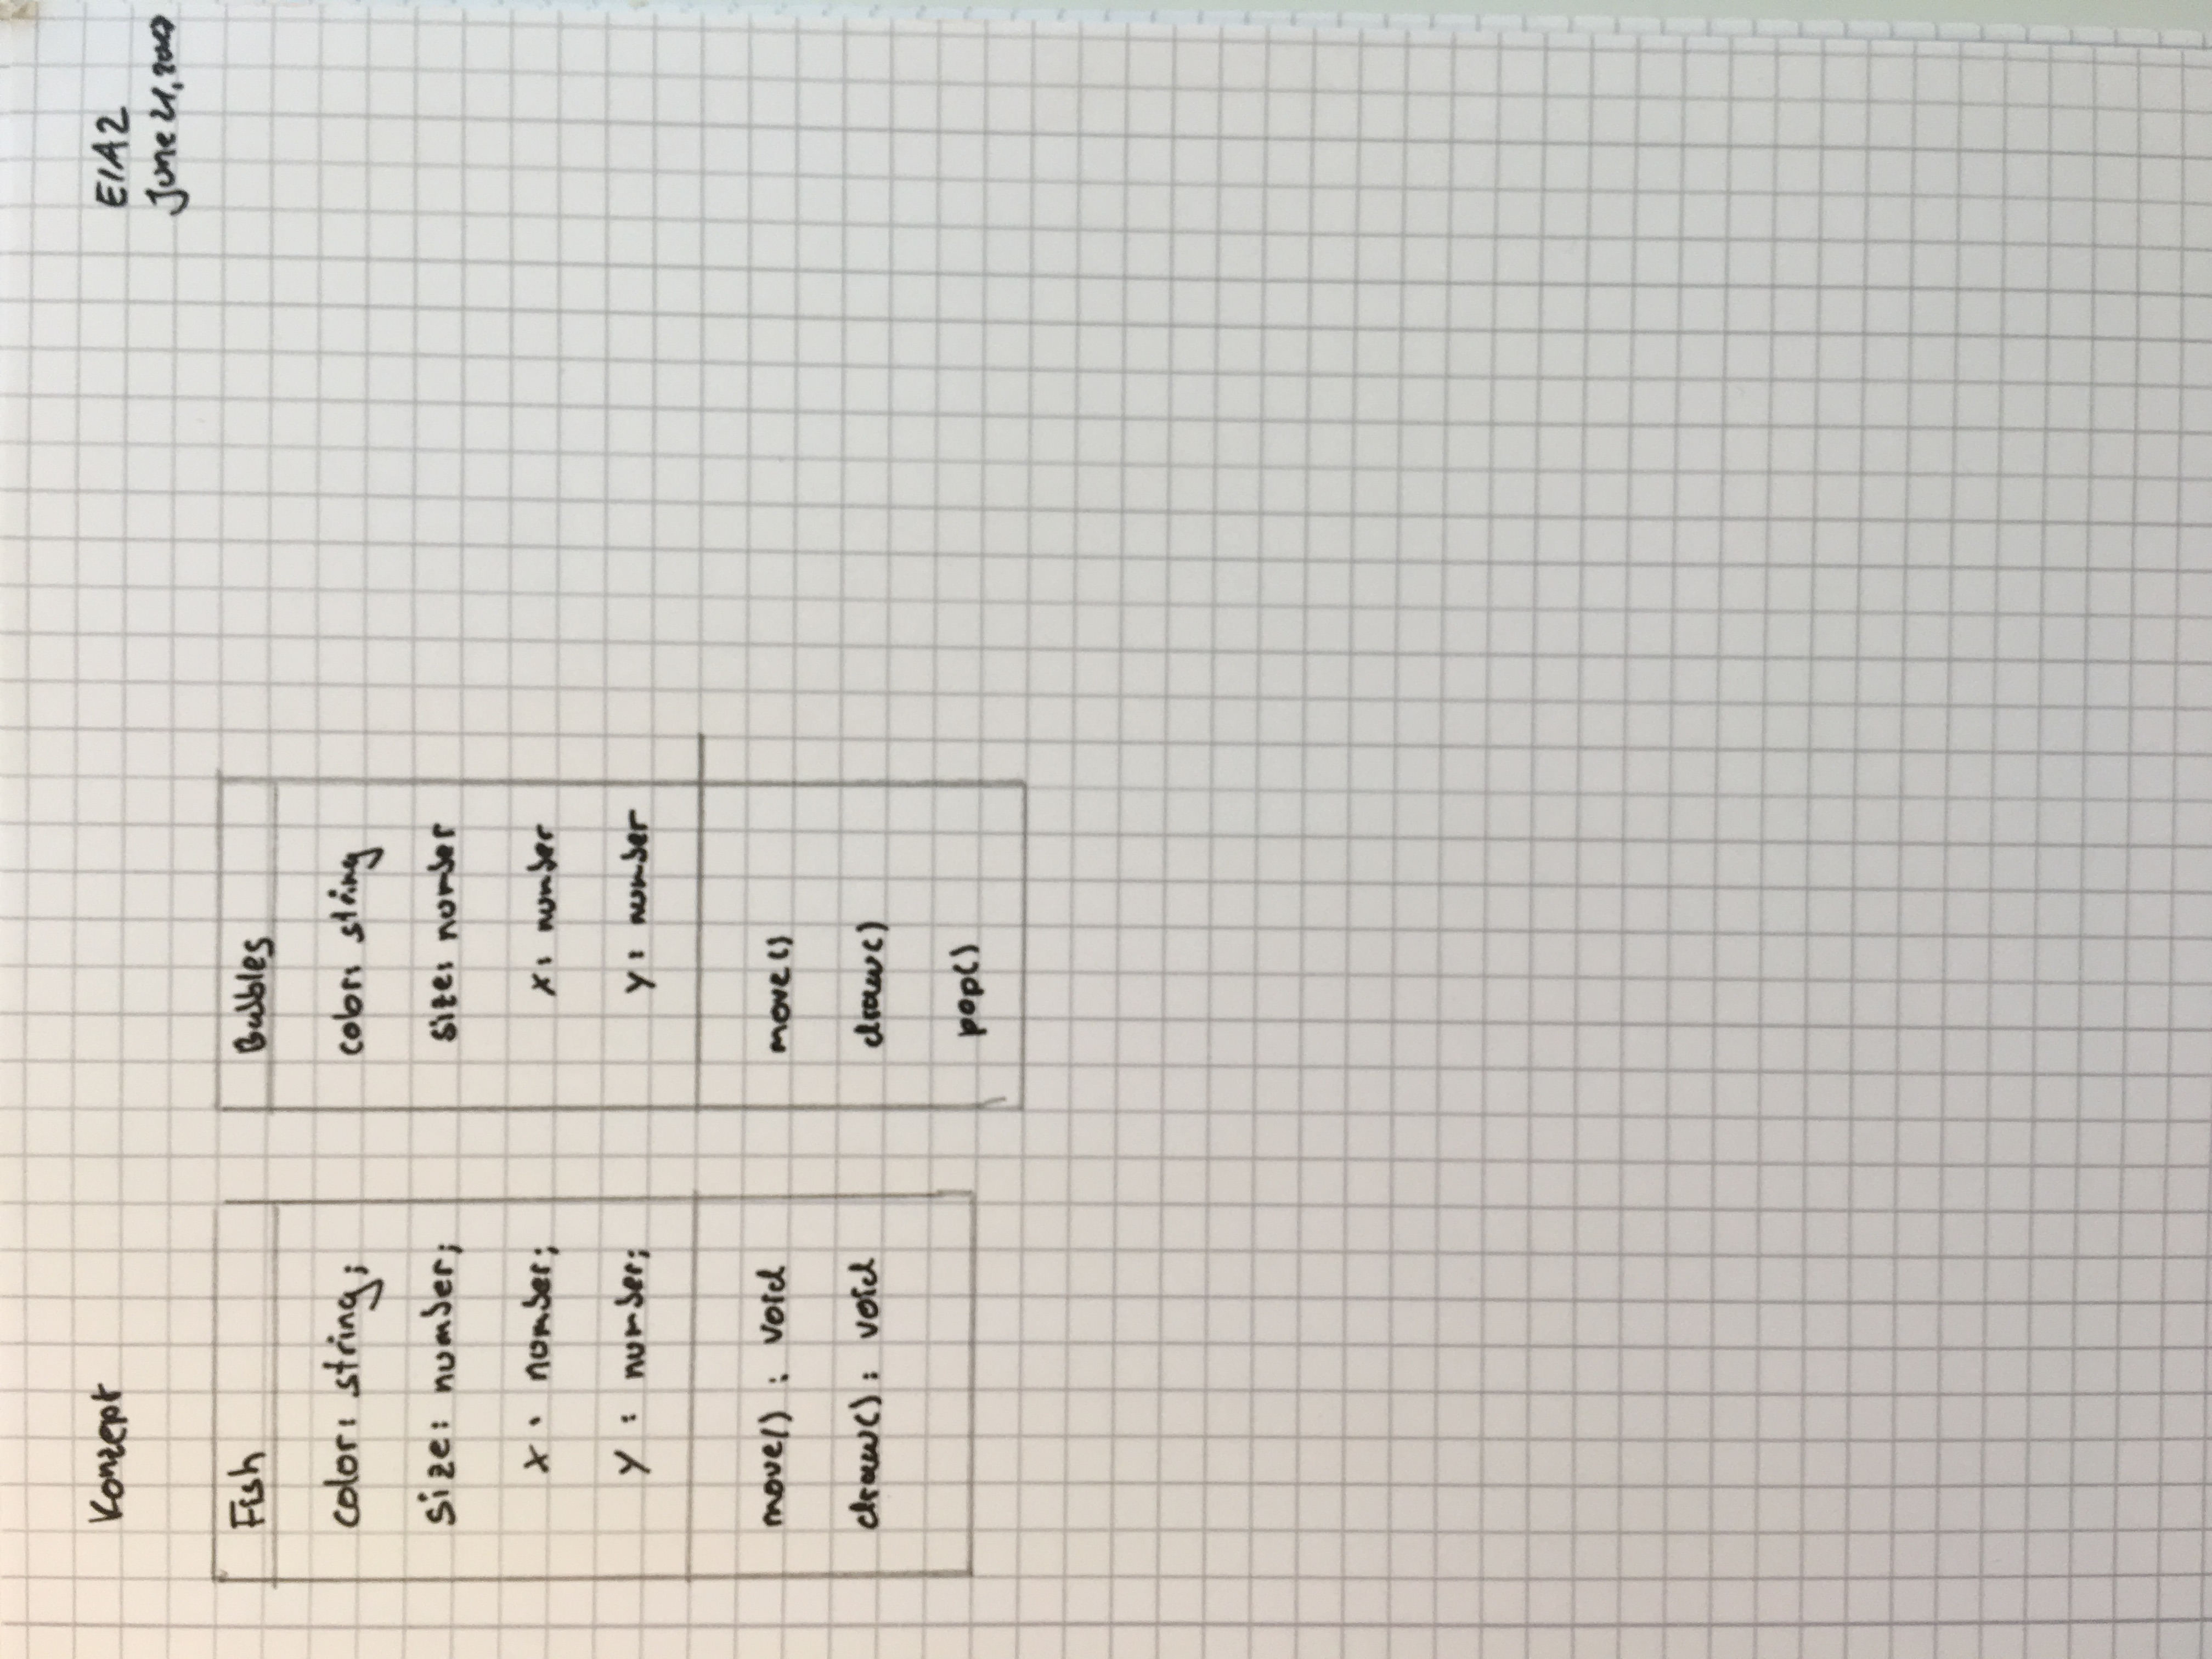 Konzept
EIA2
June 21,
Fish
color: string;
size: number;
x : number;
y : number;
move() : void
draw() : void
Bubbles
color: string
size: number
x: number
y: number
move()
draw()
pop()